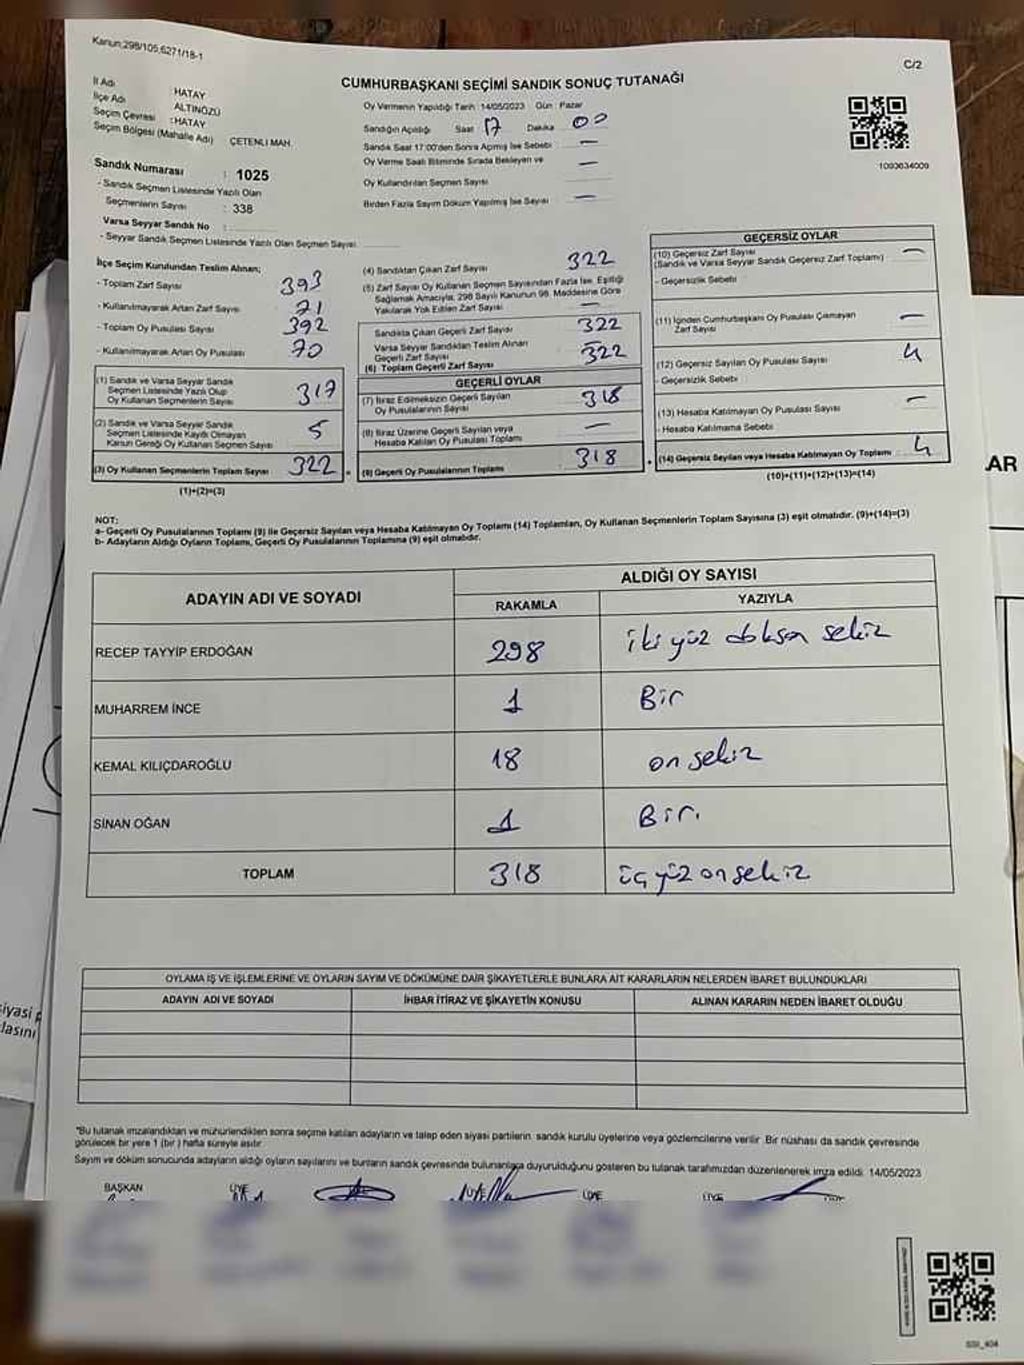 Kanun;298/105,6271/18-1
C/2
CUMHURBAŞKANI SEÇİMİ SANDIK SONUÇ TUTANAĞI
İl Adı HATAY
İlçe Adı ALTINÖZÜ
Seçim Çevresi :HATAY
Seçim Bölgesi (Mahalle Adı) ÇETENLİ MAH.
Sandık Numarası : 1025
- Sandık Seçmen Listesinde Yazılı Olan
Seçmenlerin Sayısı : 338
Varsa Seyyar Sandık No :
- Seyyar Sandık Seçmen Listesinde Yazılı Olan Seçmen Sayısı
Oy Vermenin Yapıldığı Tarih :14/05/2023 Gün : Pazar
Sandığın Açıldığı Saat 17 Dakika 00
Sandık Saat 17:00'den Sonra Açmış İse Sebebi : —
Oy Verme Saati Bitiminde Sırada Bekleyen ve —
Oy Kullandırılan Seçmen Sayısı
Birden Fazla Sayım Döküm Yapılmış İse Sayısı —
1093634009
İlçe Seçim Kurulundan Teslim Alınan;
- Toplam Zarf Sayısı 393
- Kullanılmayarak Artan Zarf Sayısı 71
- Toplam Oy Pusulası Sayısı 392
- Kullanılmayarak Artan Oy Pusulası 70
(1) Sandık ve Varsa Seyyar Sandık
Seçmen Listesinde Yazılı Olup
Oy Kullanan Seçmenlerin Sayısı 317
(2) Sandık ve Varsa Seyyar Sandık
Seçmen Listesinde Kayıtlı Olmayan
Kanun Gereği Oy Kullanan Seçmen Sayısı 5
(3) Oy Kullanan Seçmenlerin Toplam Sayısı 322
(1)+(2)=(3)
(4) Sandıktan Çıkan Zarf Sayısı 322
(5) Zarf Sayısı Oy Kullanan Seçmen Sayısından Fazla İse, Eşitliği
Sağlamak Amacıyla, 298 Sayılı Kanunun 98. Maddesine Göre
Yakılarak Yok Edilen Zarf Sayısı —
Sandıkta Çıkan Geçerli Zarf Sayısı 322
Varsa Seyyar Sandıktan Teslim Alınan
Geçerli Zarf Sayısı —
(6) Toplam Geçerli Zarf Sayısı 322
GEÇERLİ OYLAR
(7) İtiraz Edilmeksizin Geçerli Sayılan
Oy Pusulalarının Sayısı 318
(8) İtiraz Üzerine Geçerli Sayılan veya
Hesaba Katılan Oy Pusulası Toplamı —
(9) Geçerli Oy Pusulalarının Toplamı 318
GEÇERSİZ OYLAR
(10) Geçersiz Zarf Sayısı —
(Sandık ve Varsa Seyyar Sandık Geçersiz Zarf Toplamı)
- Geçersizlik Sebebi
(11) İçinden Cumhurbaşkanı Oy Pusulası Çıkmayan
Zarf Sayısı —
(12) Geçersiz Sayılan Oy Pusulası Sayısı 4
- Geçersizlik Sebebi
(13) Hesaba Katılmayan Oy Pusulası Sayısı —
- Hesaba Katılmama Sebebi
(14) Geçersiz Sayılan veya Hesaba Katılmayan Oy Toplamı 4
(10)+(11)+(12)+(13)=(14)
NOT:
a- Geçerli Oy Pusulalarının Toplamı (9) ile Geçersiz Sayılan veya Hesaba Katılmayan Oy Toplamı (14) Toplamları, Oy Kullanan Seçmenlerin Toplam Sayısına (3) eşit olmalıdır. (9)+(14)=(3)
b- Adayların Aldığı Oyların Toplamı, Geçerli Oy Pusulalarının Toplamına (9) eşit olmalıdır.
ADAYIN ADI VE SOYADI ALDIĞI OY SAYISI
RAKAMLA YAZIYLA
RECEP TAYYİP ERDOĞAN 298 iki yüz doksan sekiz
MUHARREM İNCE 1 Bir
KEMAL KILIÇDAROĞLU 18 on sekiz
SİNAN OĞAN 1 Bir.
TOPLAM 318 üç yüz on sekiz
OYLAMA İŞ VE İŞLEMLERİNE VE OYLARIN SAYIM VE DÖKÜMÜNE DAİR ŞİKAYETLERLE BUNLARA AİT KARARLARIN NELERDEN İBARET BULUNDUKLARI
ADAYIN ADI VE SOYADI İHBAR İTİRAZ VE ŞİKAYETİN KONUSU ALINAN KARARIN NEDEN İBARET OLDUĞU
*Bu tutanak imzalandıktan ve mühürlendikten sonra seçime katılan adayların ve talep eden siyasi partilerin sandık kurulu üyelerine veya gözlemcilerine verilir .Bir nüshası da sandık çevresinde
görülecek bir yere 1 (bir ) hafta süreyle asılır
Sayım ve döküm sonucunda adayların aldığı oyların sayılarını ve bunların sandık çevresinde bulunanlara duyurulduğunu gösteren bu tutanak tarafımızdan düzenlenerek imza edildi. 14/05/2023
BAŞKAN ÜYE ÜYE ÜYE ÜYE
AR
siyasi
lasını